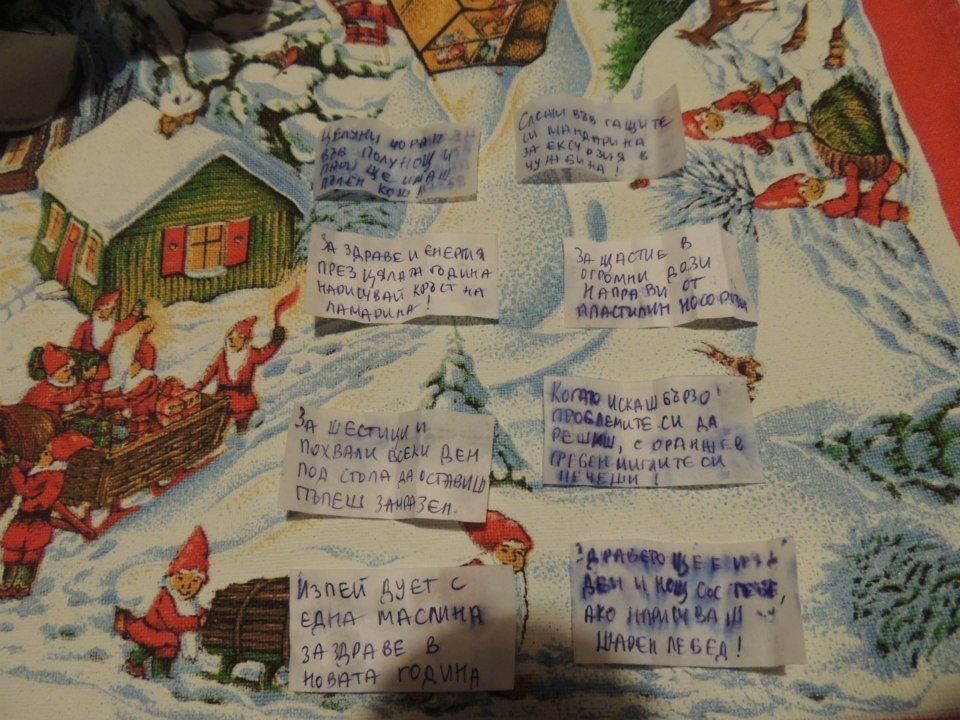 ЦЕЛУНИ ЧОРАП
ВЪВ ПОЛУНОЩ И
ПАРИ ЩЕ ИМАШ
ПЪЛЕН КОШ!
СЛОЖИ ВЪВ ГАЩИТЕ
СИ МАНДАРИНА
ЗА ЕКСУРЗИЯ В
ЧУЖБИНА!
ЗА ЗДРАВЕ И ЕНЕРГИЯ
ПРЕЗ ЦЯЛАТА ГОДИНА
НАРИСУВАЙ КРЪСТ НА
ЛАМАРИНА!
ЗА ЩАСТИЕ В
ОГРОМНИ ДОЗИ
НАПРАВИ ОТ
ПЛАСТИЛИН НОСОРОЗИ
ЗА ШЕСТИЦИ И
ПОХВАЛИ ВСЕКИ ДЕН
ПОД СТОЛА ДА ОСТАВИШ
ПЪПЕШ ЗАМРАЗЕН.
КОГАТО ИСКАШ БЪРЗО
ПРОБЛЕМИТЕ СИ ДА
РЕШИШ, С ОРАНЖЕВ
ГРЕБЕН МИГЛИТЕ СИ
ПЕЧЕШИ!
ИЗПЕЙ ДУЕТ С
ЕДНА МАСЛИНА
ЗА ЗДРАВЕ В
НОВАТА ГОДИНА
ЗДРАВЕТО ЩЕ Е
ДЕН И НОЩ СЪС ТЕБЕ,
АКО НАРИСУВАШ
ШАРЕН ЛЕБЕД!